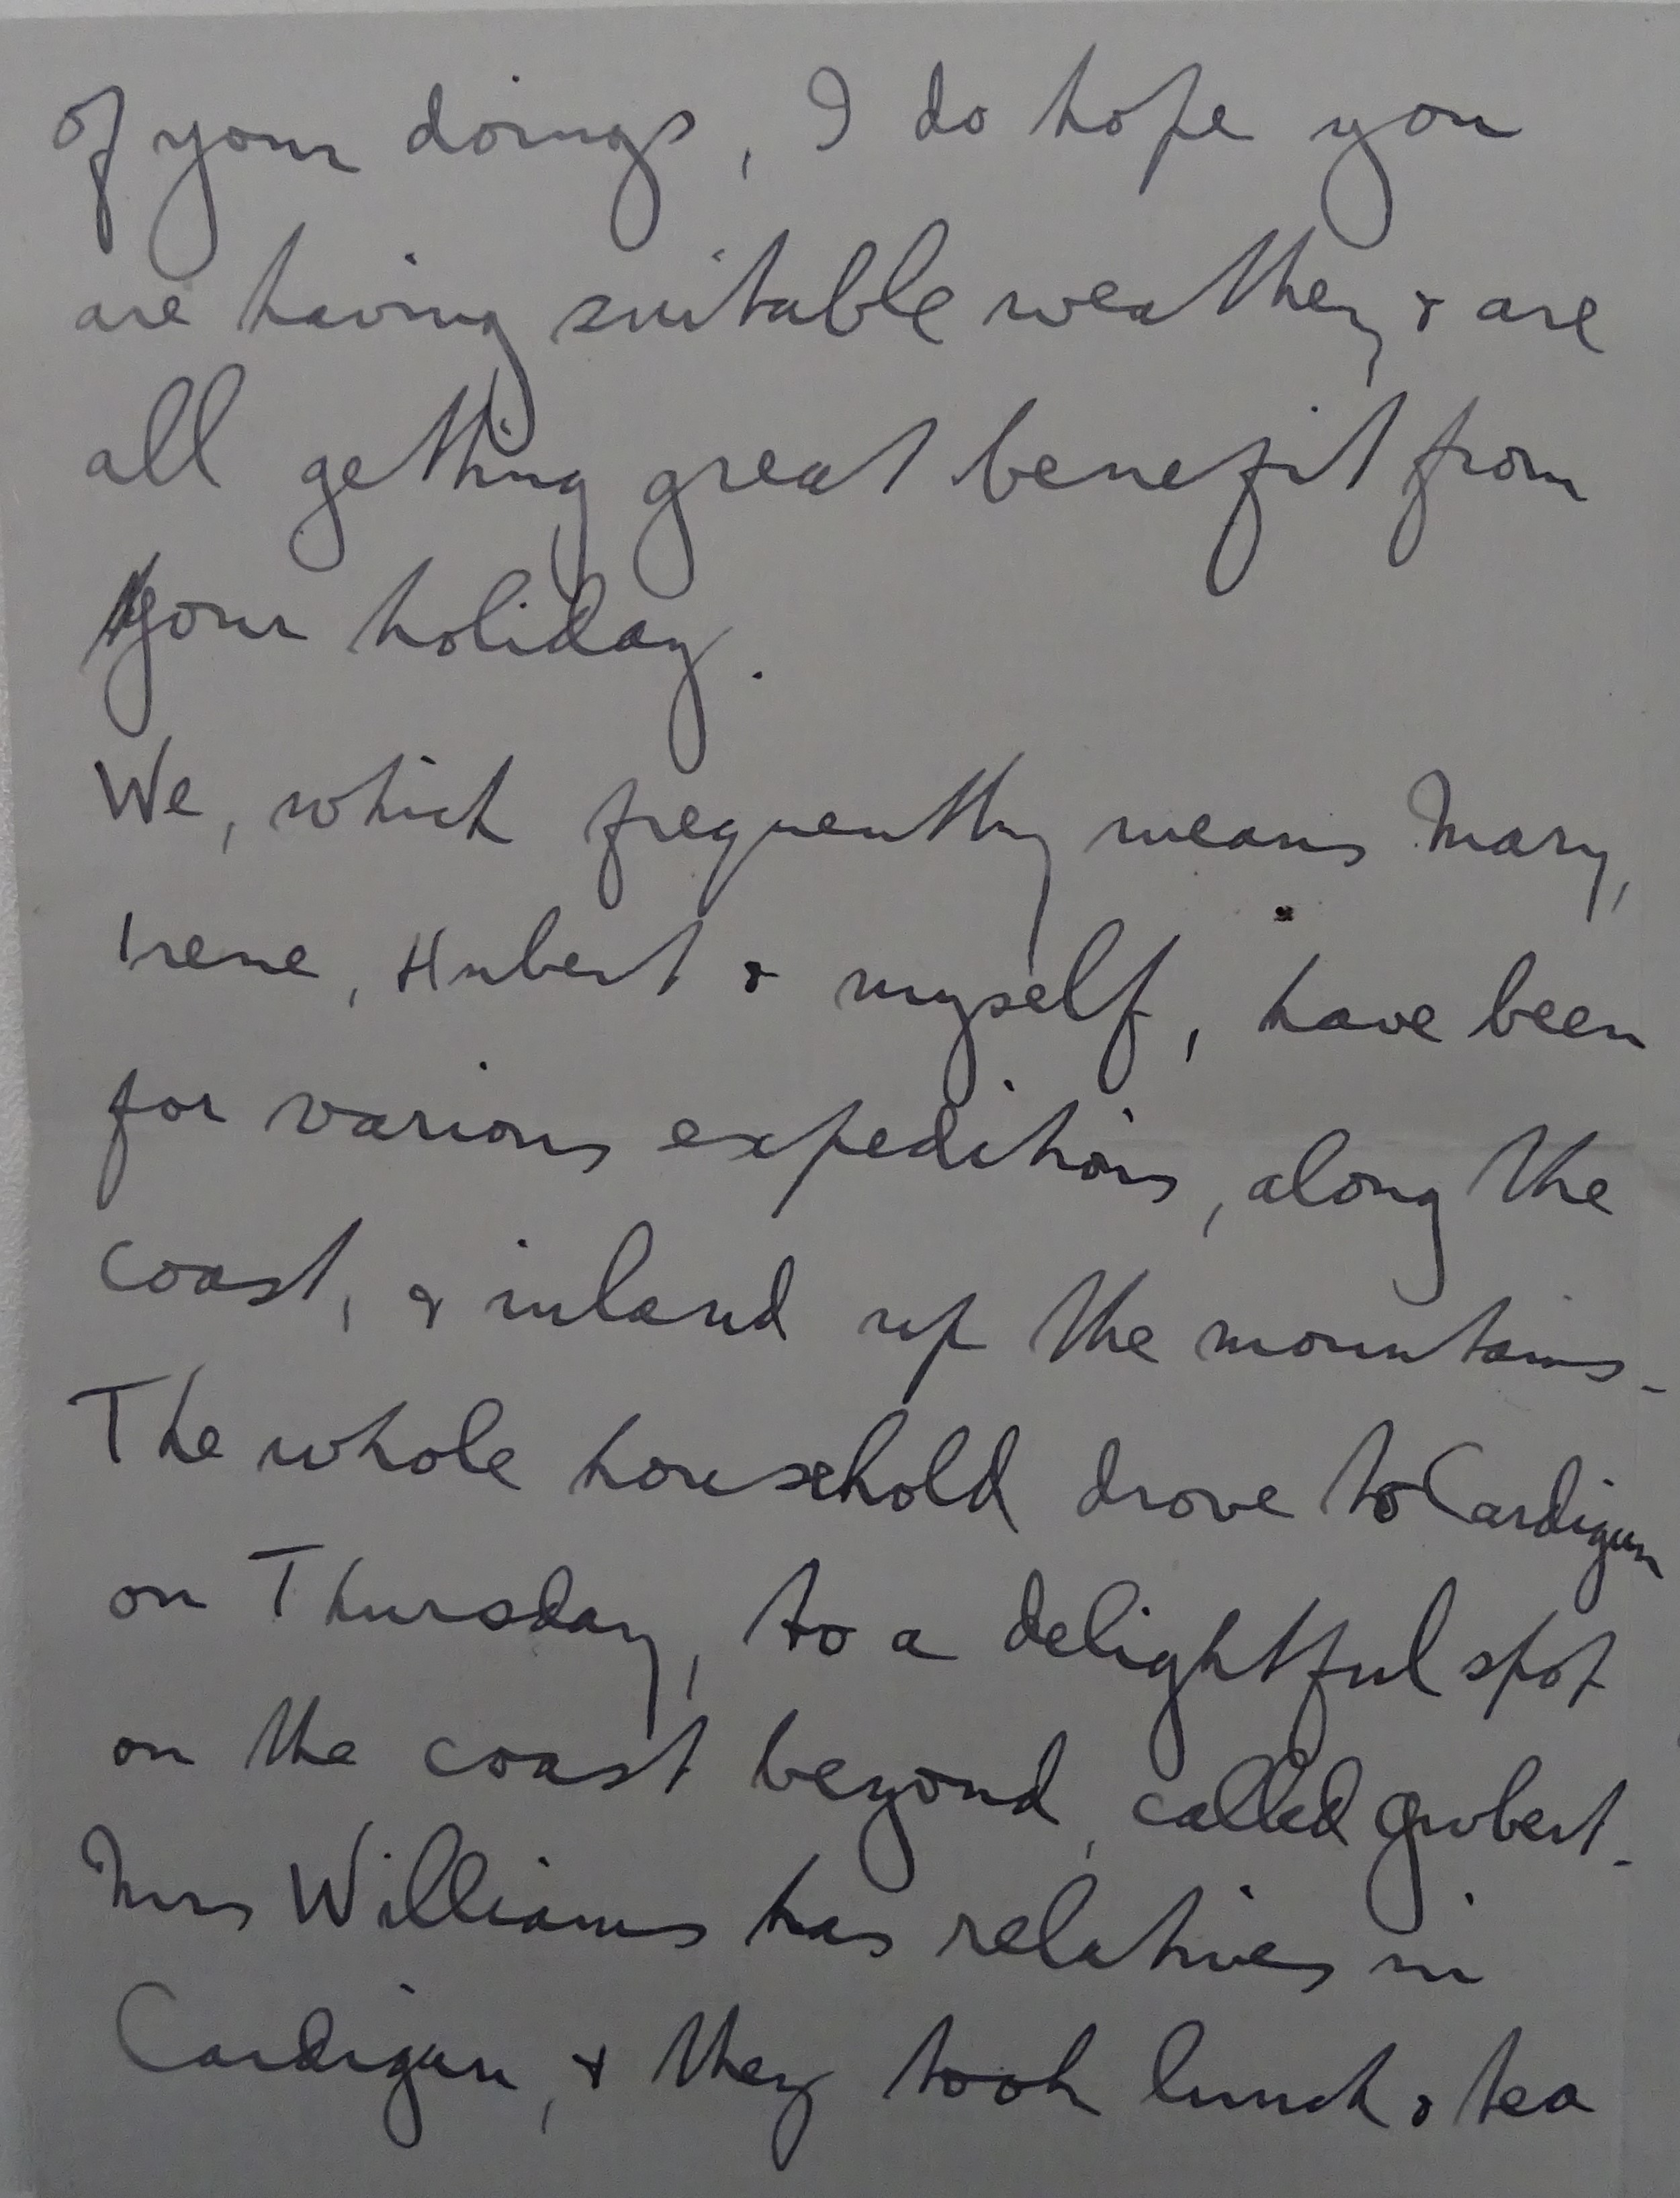 of your doings, I do hope you
are having suitable weather, & are
all getting great benefit from
your holiday.
We, which frequently means Mary,
Irene, Hubert & myself, have been
for various expeditions, along the
coast, & inland up the mountains.
The whole household drove to Cardigan
on Thursday, to a delightful spot
on the coast beyond, called Gwbert.
Mrs Williams has relatives in
Cardigan, & they took lunch & tea